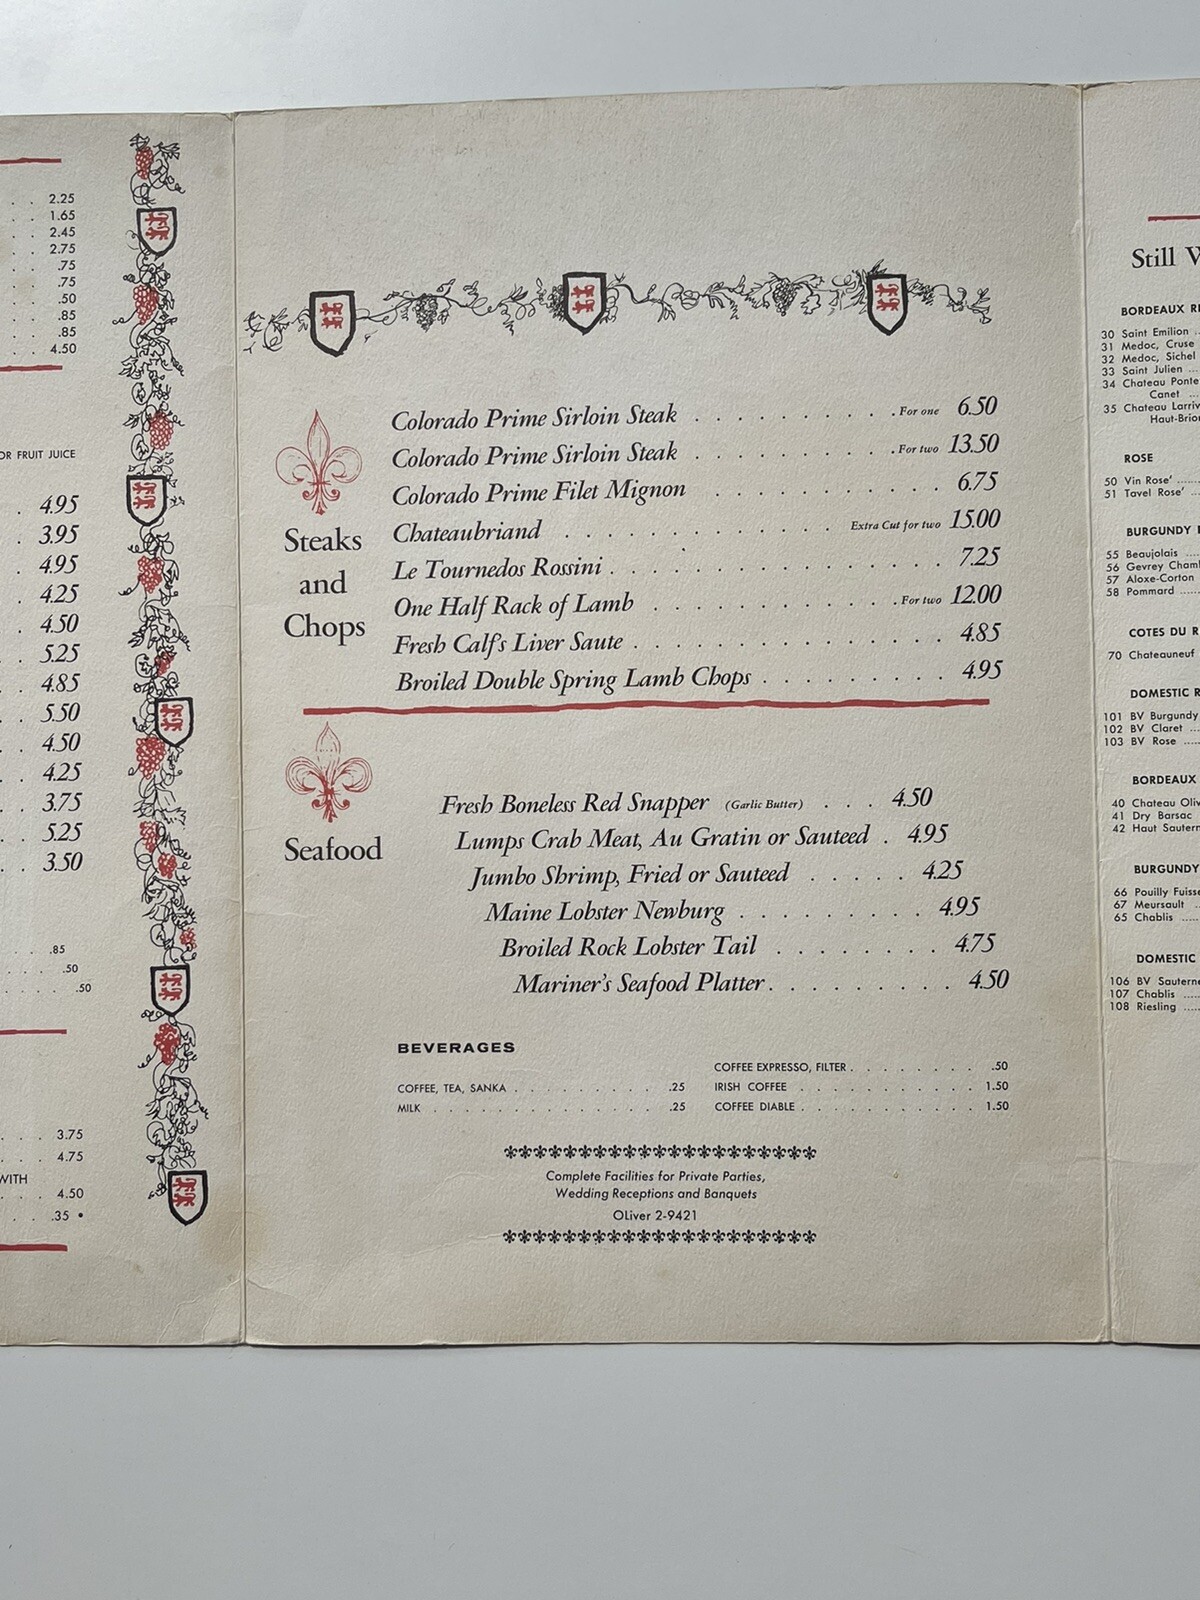 2.25
1.65
2.45
2.75
.75
.75
.50
.85
.85
4.50
OR FRUIT JUICE
4.95
3.95
4.95
4.25
4.50
5.25
4.85
5.50
4.50
4.25
3.75
5.25
3.50
.85
.50
.50
3.75
4.75
WITH
4.50
.35 •
Steaks
and
Chops
Colorado Prime Sirloin Steak . . . . . . . . . . For one 6.50
Colorado Prime Sirloin Steak . . . . . . . . . . For two 13.50
Colorado Prime Filet Mignon . . . . . . . . . . 6.75
Chateaubriand . . . . . . . . . . Extra Cut for two 15.00
Le Tournedos Rossini . . . . . . . . . . . . . . 7.25
One Half Rack of Lamb . . . . . . . . . . For two 12.00
Fresh Calf's Liver Saute . . . . . . . . . . . . . 4.85
Broiled Double Spring Lamb Chops . . . . . . . . . 4.95
Seafood
Fresh Boneless Red Snapper (Garlic Butter) . . . 4.50
Lumps Crab Meat, Au Gratin or Sauteed . 4.95
Jumbo Shrimp, Fried or Sauteed . . . . . 4.25
Maine Lobster Newburg . . . . . . . . 4.95
Broiled Rock Lobster Tail . . . . . . . 4.75
Mariner's Seafood Platter . . . . . . . . . 4.50
BEVERAGES
COFFEE, TEA, SANKA . . . . . . . . . . .25
MILK . . . . . . . . . . . . . . .25
COFFEE EXPRESSO, FILTER . . . . . . . . .50
IRISH COFFEE . . . . . . . . . . 1.50
COFFEE DIABLE . . . . . . . . . . 1.50
Complete Facilities for Private Parties,
Wedding Receptions and Banquets
OLiver 2-9421
Still W
BORDEAUX RE
30 Saint Emilion ..
31 Medoc, Cruse
32 Medoc, Sichel
33 Saint Julien ...
34 Chateau Ponte
Canet ...
35 Chateau Larriv
Haut-Brion
ROSE
50 Vin Rose' ......
51 Tavel Rose' ...
BURGUNDY
55 Beaujolais ....
56 Gevrey Chaml
57 Aloxe-Corton
58 Pommard .....
COTES DU R
70 Chateauneuf
DOMESTIC R
101 BV Burgundy
102 BV Claret ...
103 BV Rose .....
BORDEAUX
40 Chateau Oliv
41 Dry Barsac
42 Haut Sautern
BURGUNDY
66 Pouilly Fuisse
67 Meursault ..
65 Chablis .....
DOMESTIC
106 BV Sauterne
107 Chablis .....
108 Riesling ....